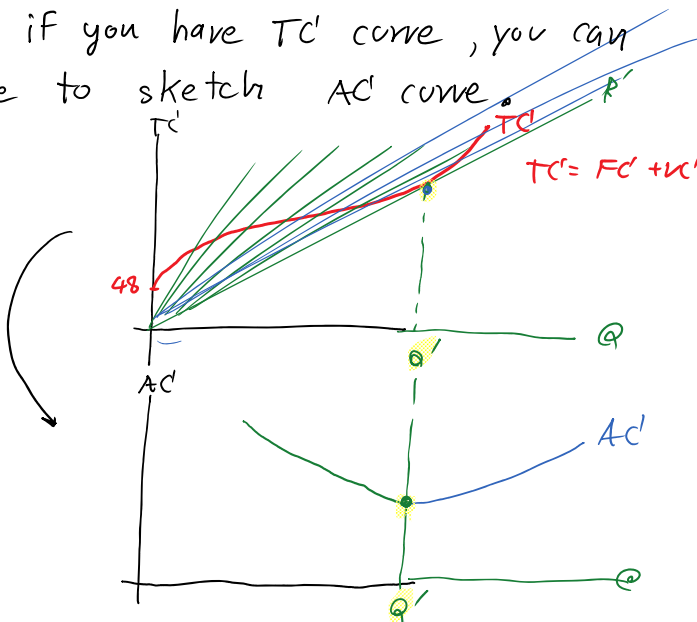 if you have TC curve, you can
e to sketch AC curve.
TC
TC
R'
TC = FC + VC
48
Q' Q
AC
AC
Q' Q